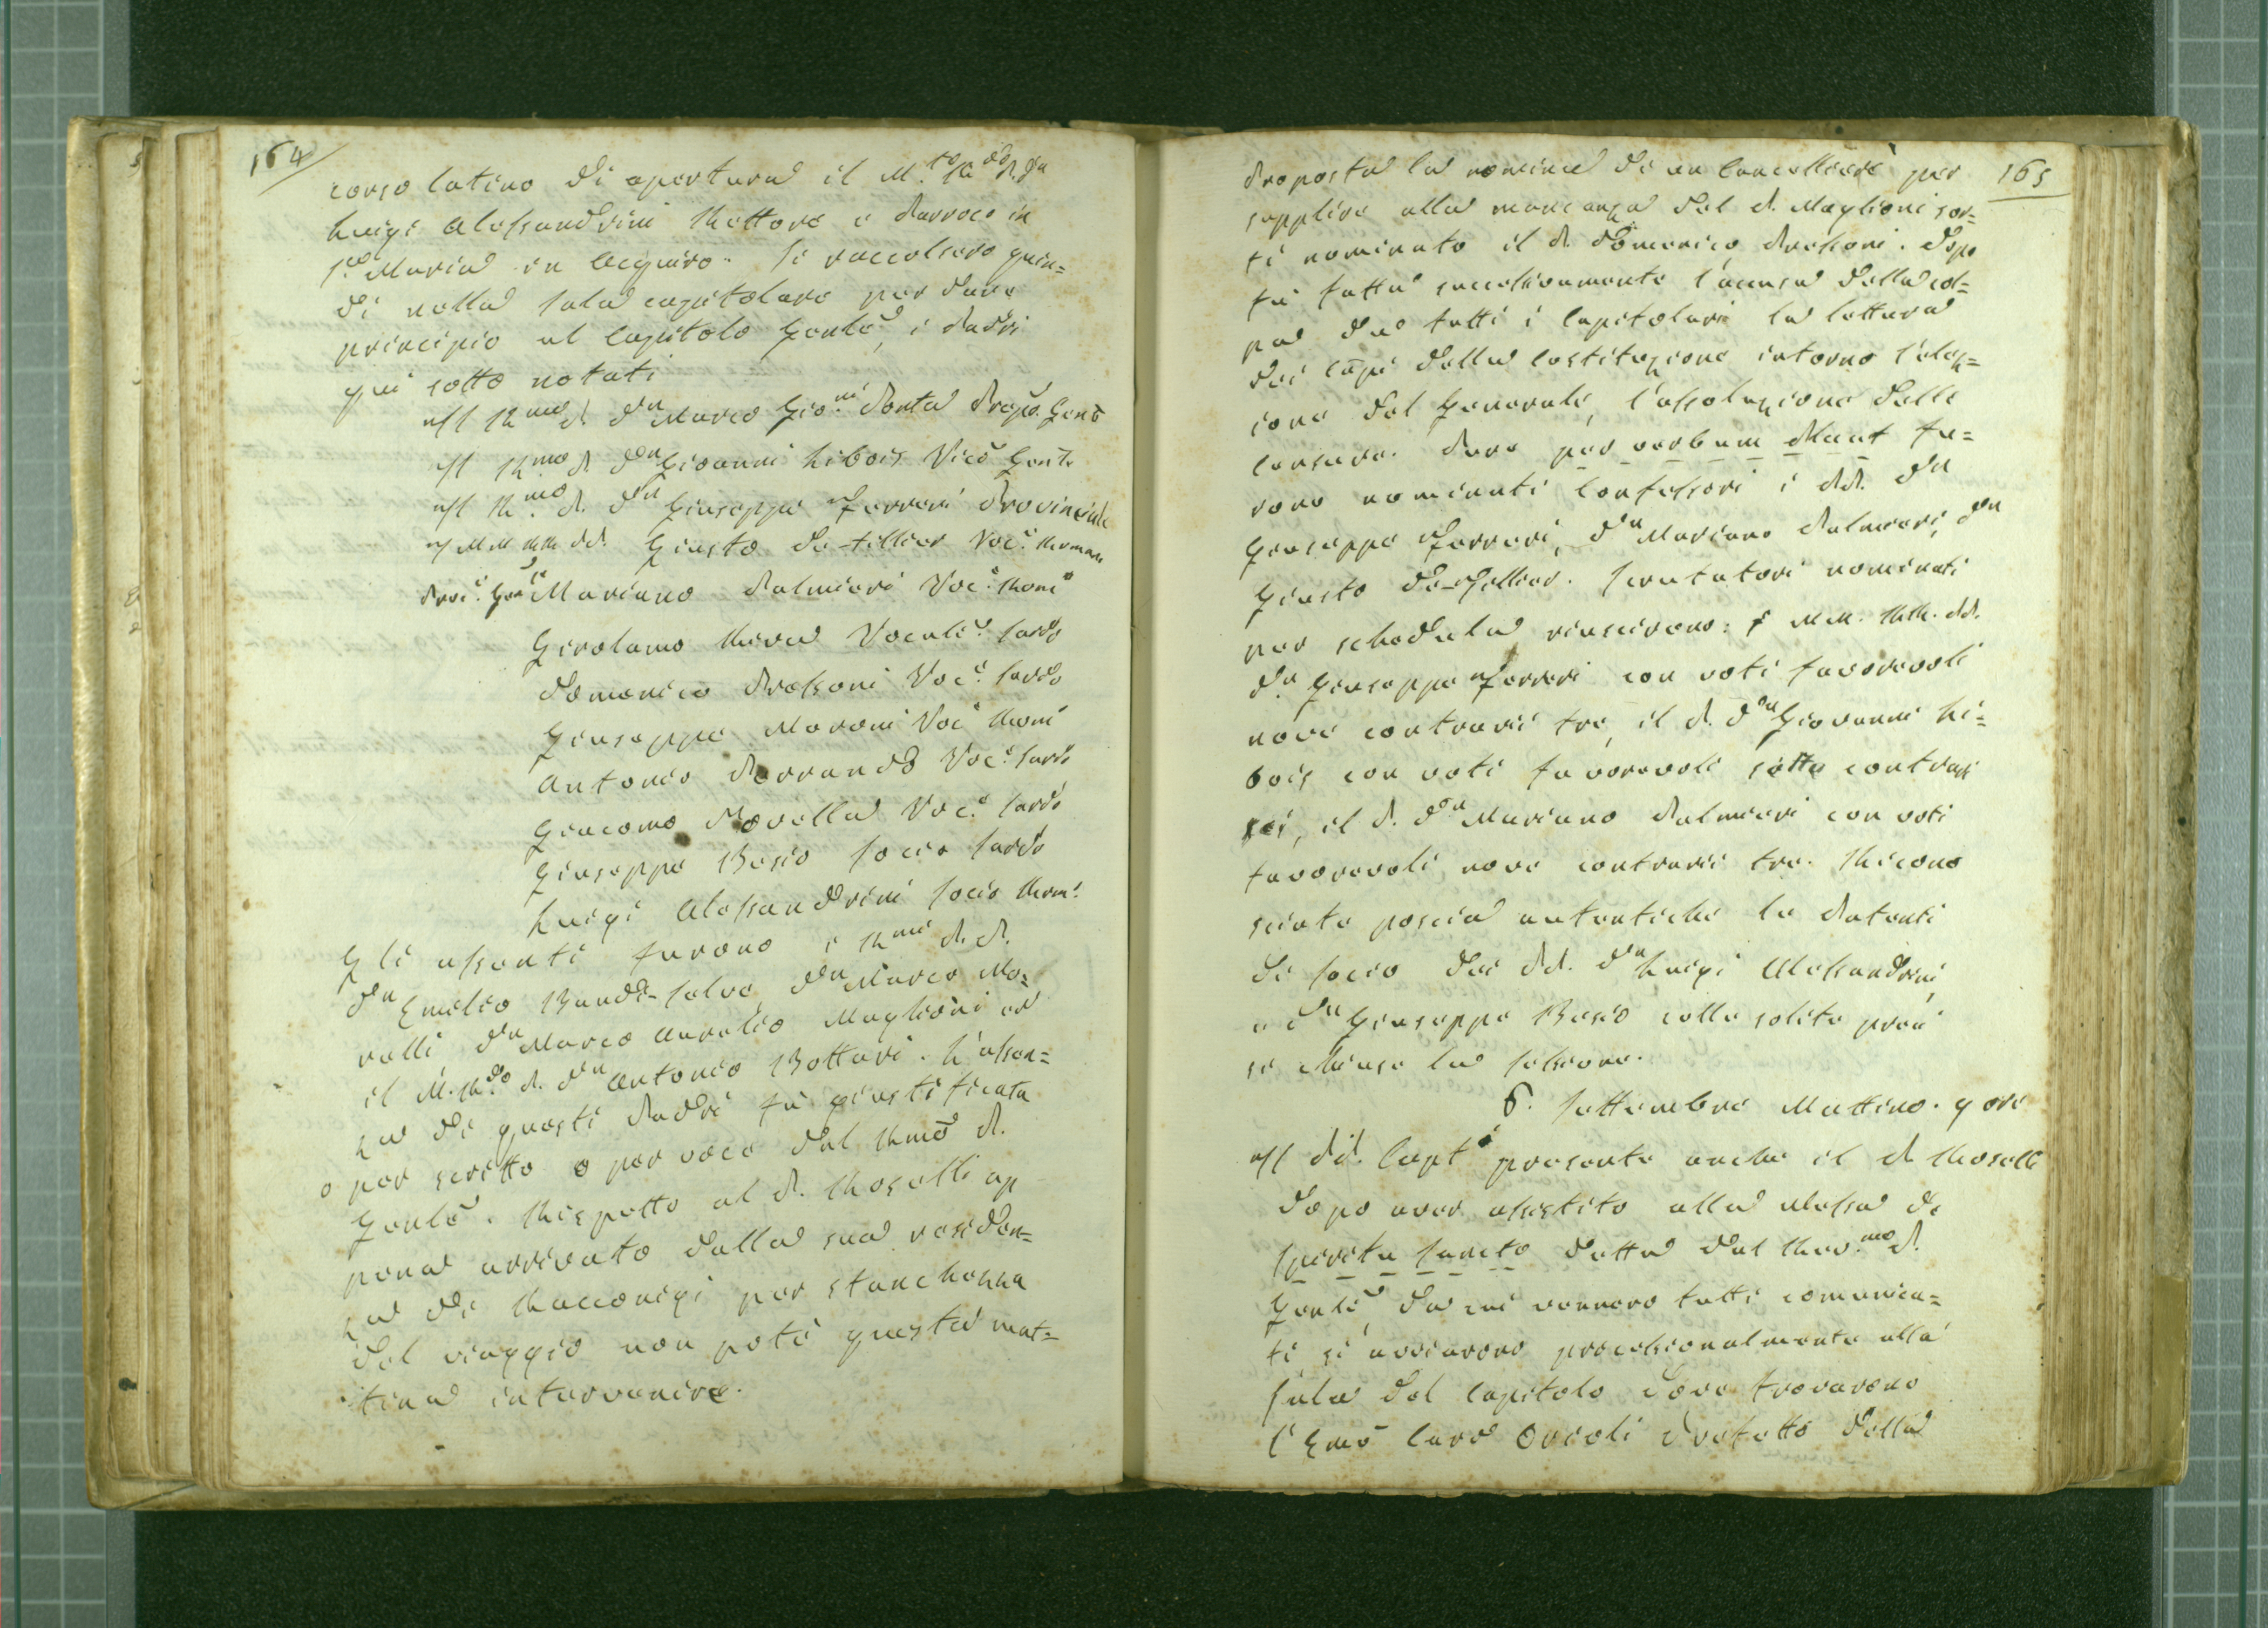 164
corso latino di apertura il M.to R.do P. Dn
Luigi Alessandrini Rettore e Parroco in
S.a Maria in Acquiro. Si raccolsero quin=
di nella sala capitolare per dare
principio al Capitolo Genle, i Padri
qui sotto notati
Il Rmo P. Dn Marco Gio.ni Ponta Prepo. Genle
Il Rmo P. Dn Giovanni Libois Vico Genle
Il Rmo P. Dn Giuseppe Ferreri Provinciale
I M M RR PP. Giusto De-Tillier Voc. Romano
Proc. Gen. Mariano Palmieri Voc. Rom
Girolamo Vocale Sardo
Domenico Pressoni Voc. Sardo
Giuseppe Moroni Voc Rom
Antonio Ferrando Voc. Sardo
Giacomo Novella Voc. Sardo
Giuseppe Besio Socio Sardo
Luigi Alessandrini Socio Rom.
Gli assenti furono i Rmi P. P.
Dn Emilio Baudi-Selve, Dn Marco Mo=
relli Dn Marco Aurelio Maglioni ed
il M. R.do P. Dn Antonio Bottari. L'assen=
za di questi Padri fu giustificata
o per scritto o per voce dal Rmo P.
Genle. Rispetto al P. Roselli ap
pena arrivato dalla sua residen=
za di Racconigi per stanchezza
del viaggio non potè questa mat=
tina intervenire.
165
Proposta la nomina di un Cancelliere per
supplire alla mancanza del P. Maglioni sor=
tì nominato il P. Domenico Pressoni. Dopo
fu fatta successivamente l'accusa della col=
pa da tutti i Capitolari la lettura
dei Capi della Costituzione intorno l'elez=
ione del Generale, l'assoluzione delle
Censure. Dare per verbum placet fu=
rono nominati Confessori i PP. Dn
Giuseppe Ferreri, Dn Mariano Palmieri, Dn
Giusto De-Tillier. Scrutatori nominati
per schedula riuscirono: i M M. RR. PP.
Dn Giuseppe Ferreri con voti favorevoli
nove contrarii tre, il P. Dn Giovanni Li=
bois con voti favorevoli sette contrari
sei, il P. Dn Mariano Palmieri con voti
favorevoli nove contrarii tre. Ricono
sciute poscia autentiche le Patenti
di Socio dei PP. Dn Luigi Alessandrini,
e Dn Giuseppe Besio colle solite preci
si chiuse la sessione.
6. Settembre Mattino. 9 ore
Il PP. Capt presente anche il P. Roselli
dopo aver assistito alla Messa de
Spiritu Sancto detta dal Rev.mo P.
Genle, da cui vennero tutti comunica=
ti si avviarono processionalmente alla
Sala del Capitolo dove trovarono
l'Emo Card Orioli Prefetto della